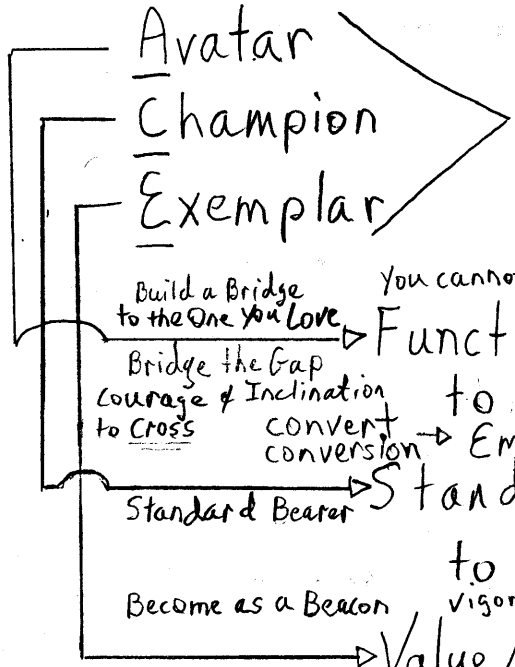 Avatar
Champion
Exemplar
Build a Bridge
to the One You Love
You canno
Funct
Bridge the Gap
Courage & Inclination
to Cross
to
convert
conversion
Em
Stand
Standard Bearer
to
Become as a Beacon
vigor
Value